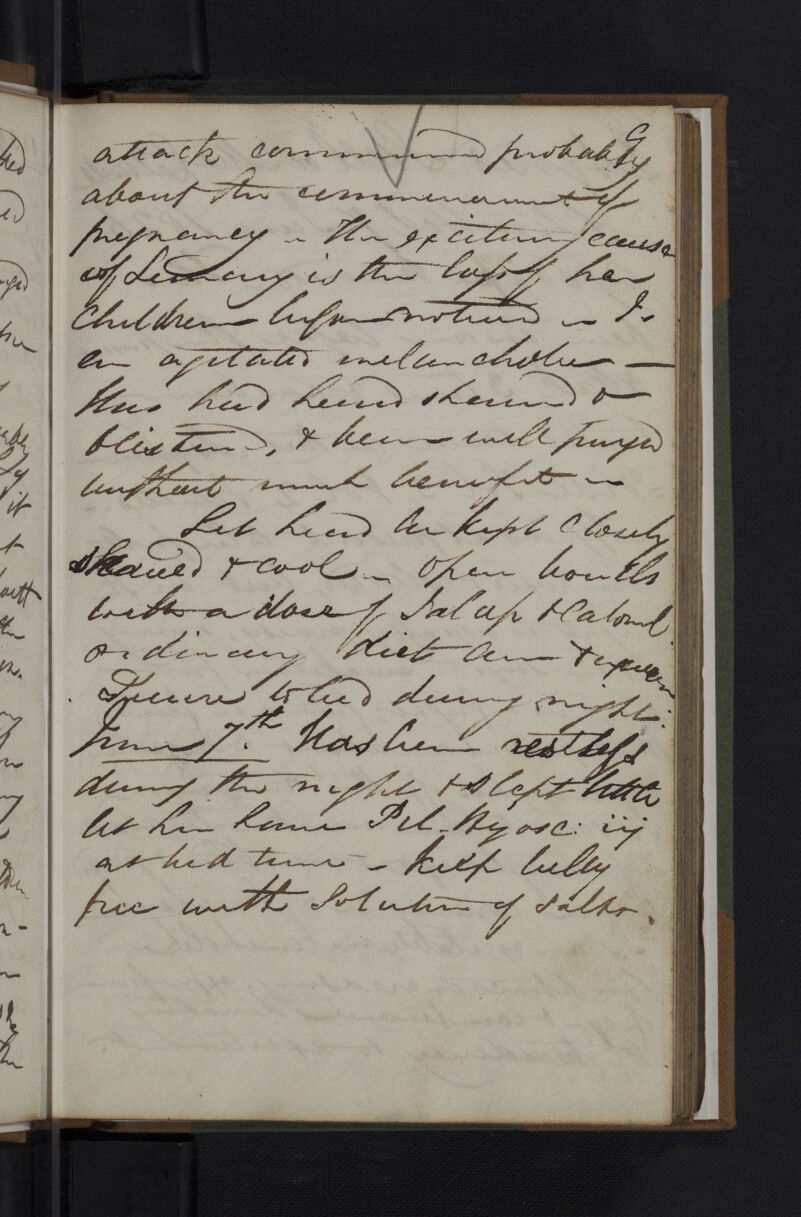 9
attack commenced probably
about the commencement of
pregnancy - the exciting cause
of Lunacy is the loss of her
children before noticed - Is
an agitated melancholic -
Has had head shaved &
blistered, & been well purged
without much benefit -
Let head be kept closely
shaved & cool - open bowels
with a dose of Jalap & Calomel
ordinary diet
Secure to bed during night.
June 7th. Has been restless
during the night & slept little
let her have Pil. Hyosc: iij
at bed time - keep belly
free with Solution of salts.